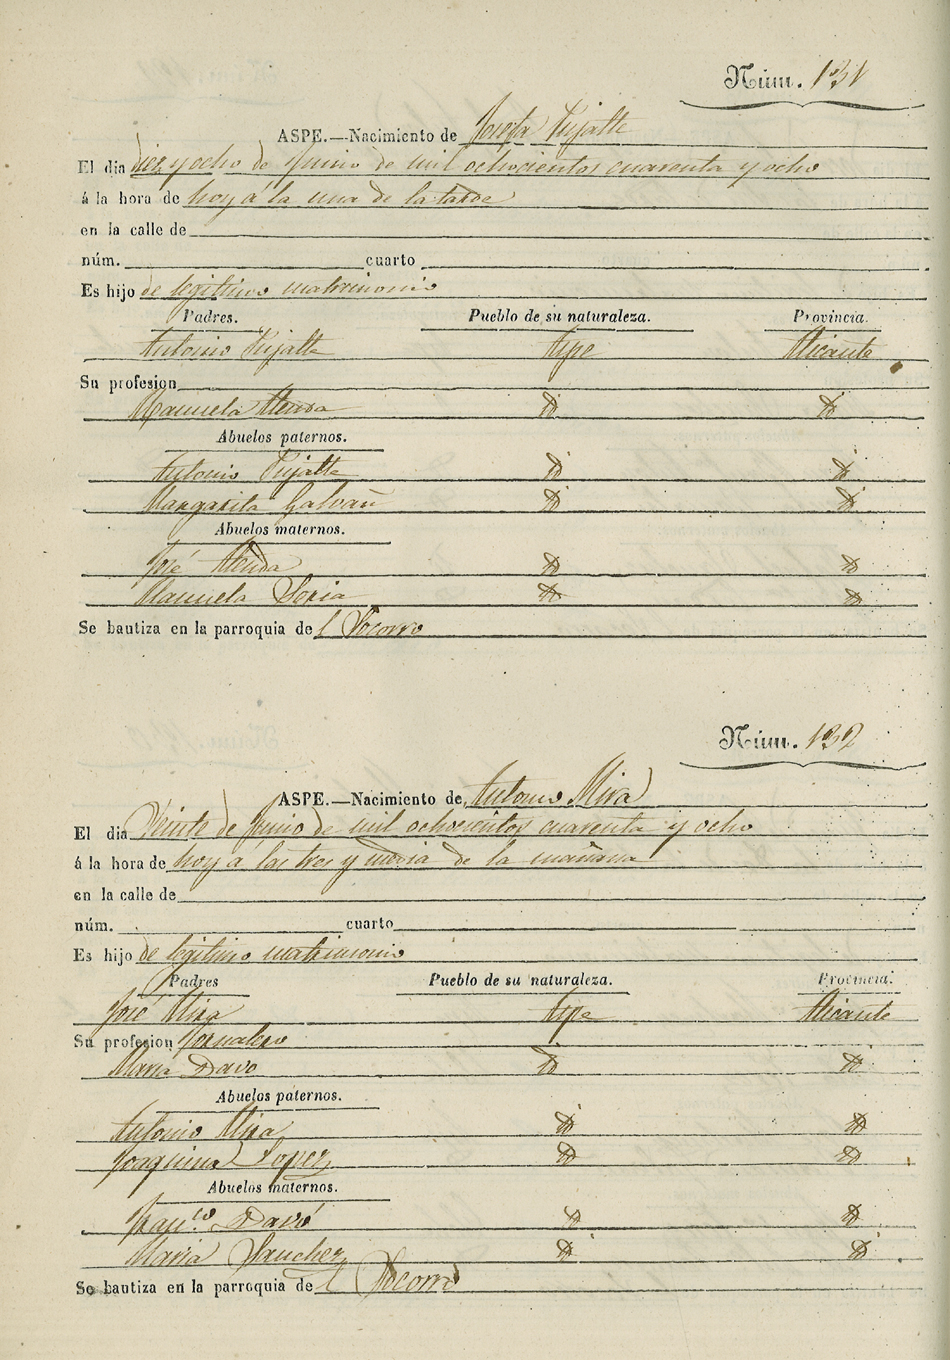 Núm. 131
ASPE.—Nacimiento de Josefa Pujalte
El dia diez y ocho de Junio de mil ochocientos cuarenta y ocho
á la hora de hoy á la una de la tarde
en la calle de
núm. cuarto
Es hijo de legitimo matrimonio
Padres. Pueblo de su naturaleza. Provincia.
Antonio Pujalte Aspe Alicante
Su profesion
Manuela Alenda Yd Yd
Abuelos paternos.
Antonio Pujalte Yd Yd
Margarita Galvañ Yd Yd
Abuelos maternos.
José Alenda Yd Yd
Manuela Soria Yd Yd
Se bautiza en la parroquia del Socorro
Núm. 132
ASPE.—Nacimiento de Antonio Mira
El dia Veinte de Junio de mil ochocientos cuarenta y ocho
á la hora de hoy á las tres y media de la mañana
en la calle de
núm. cuarto
Es hijo de legitimo matrimonio
Padres Pueblo de su naturaleza. Provincia.
José Mira Aspe Alicante
Su profesion Jornalero
Maria Davo Yd Yd
Abuelos paternos.
Antonio Mira Yd Yd
Joaquina Lopez Yd Yd
Abuelos maternos.
Fran.co Davó Yd Yd
Maria Sanchez Yd Yd
Se bautiza en la parroquia del Socorro